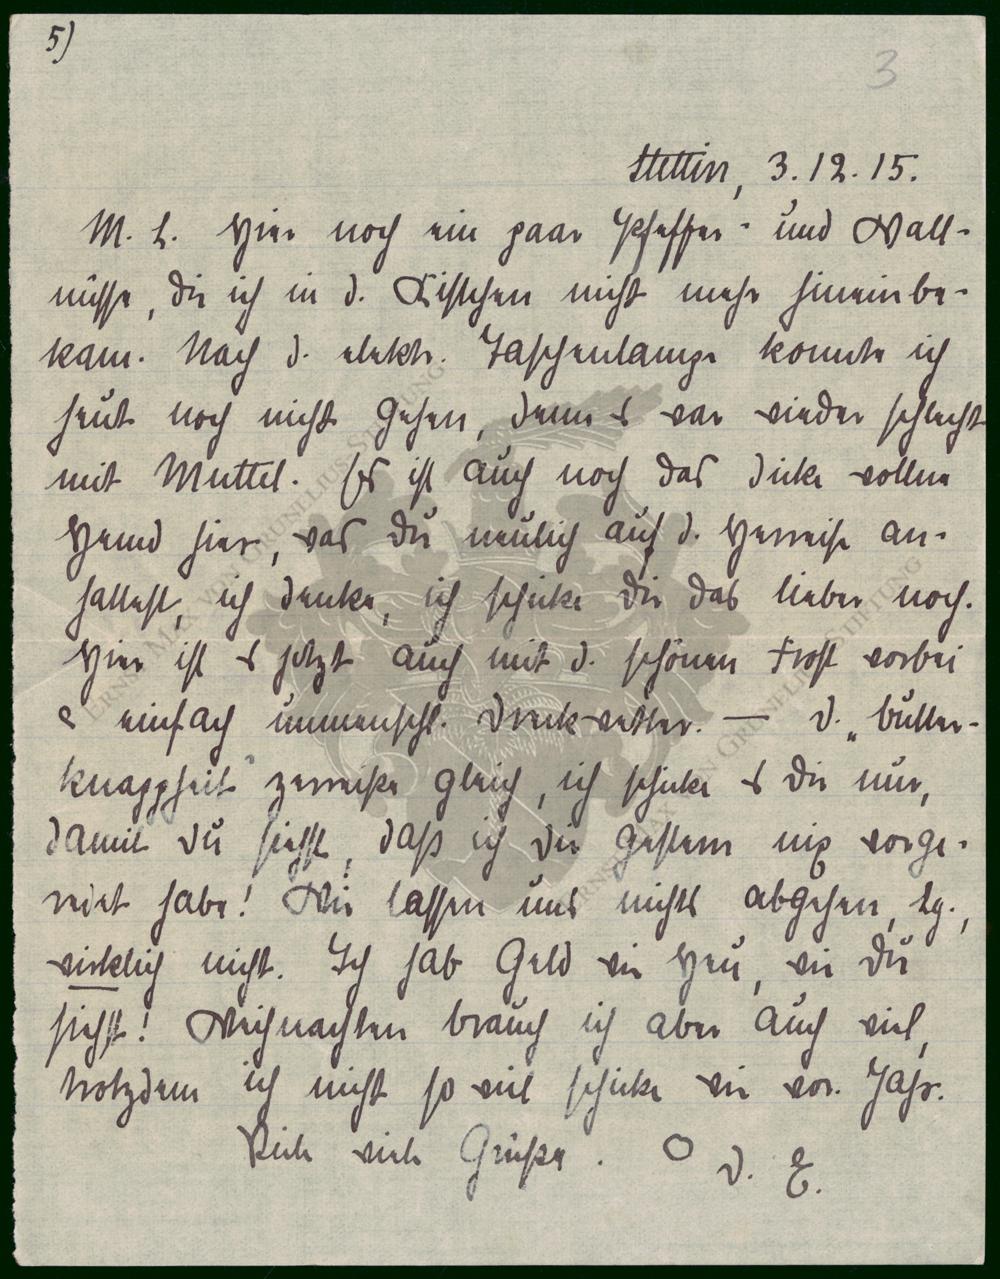 5)
3
Stettin, 3.12.15.
M. L. Hier noch ein paar Pfeffer- und Wall-
nüsse, die ich in d. Kistchen nicht mehr hineinbe-
kam. Nach d. elektr. Taschenlampe konnte ich
heut noch nicht gehen, denn es war wieder schlecht
mit Muttel. Es ist auch noch das dicke wollne
Hemd hier, was Du neulich auf d. Herreise an-
hattest, ich denke, ich schicke Dir das lieber noch.
Hier ist es jetzt auch mit d. schönen Frost vorbei
& einfach unmenschl. Dreckwetter. — D. „Butter-
knappheit" zerreiße gleich, ich schicke es Dir nur,
damit Du siehst, daß ich Dir gestern nix vorge-
redet habe! Wir lassen uns nichts abgehen, Lg.,
wirklich nicht. Ich hab Geld wie Heu, wie Du
siehst! Weihnachten brauch ich aber auch viel,
trotzdem ich nicht so viel schicke wie vor. Jahr.
viele Grüße. O D. E.
ERNST MAX VON GRUNELIUS-STIFTUNG
ERNST MAX VON GRUNELIUS-STIFTUNG